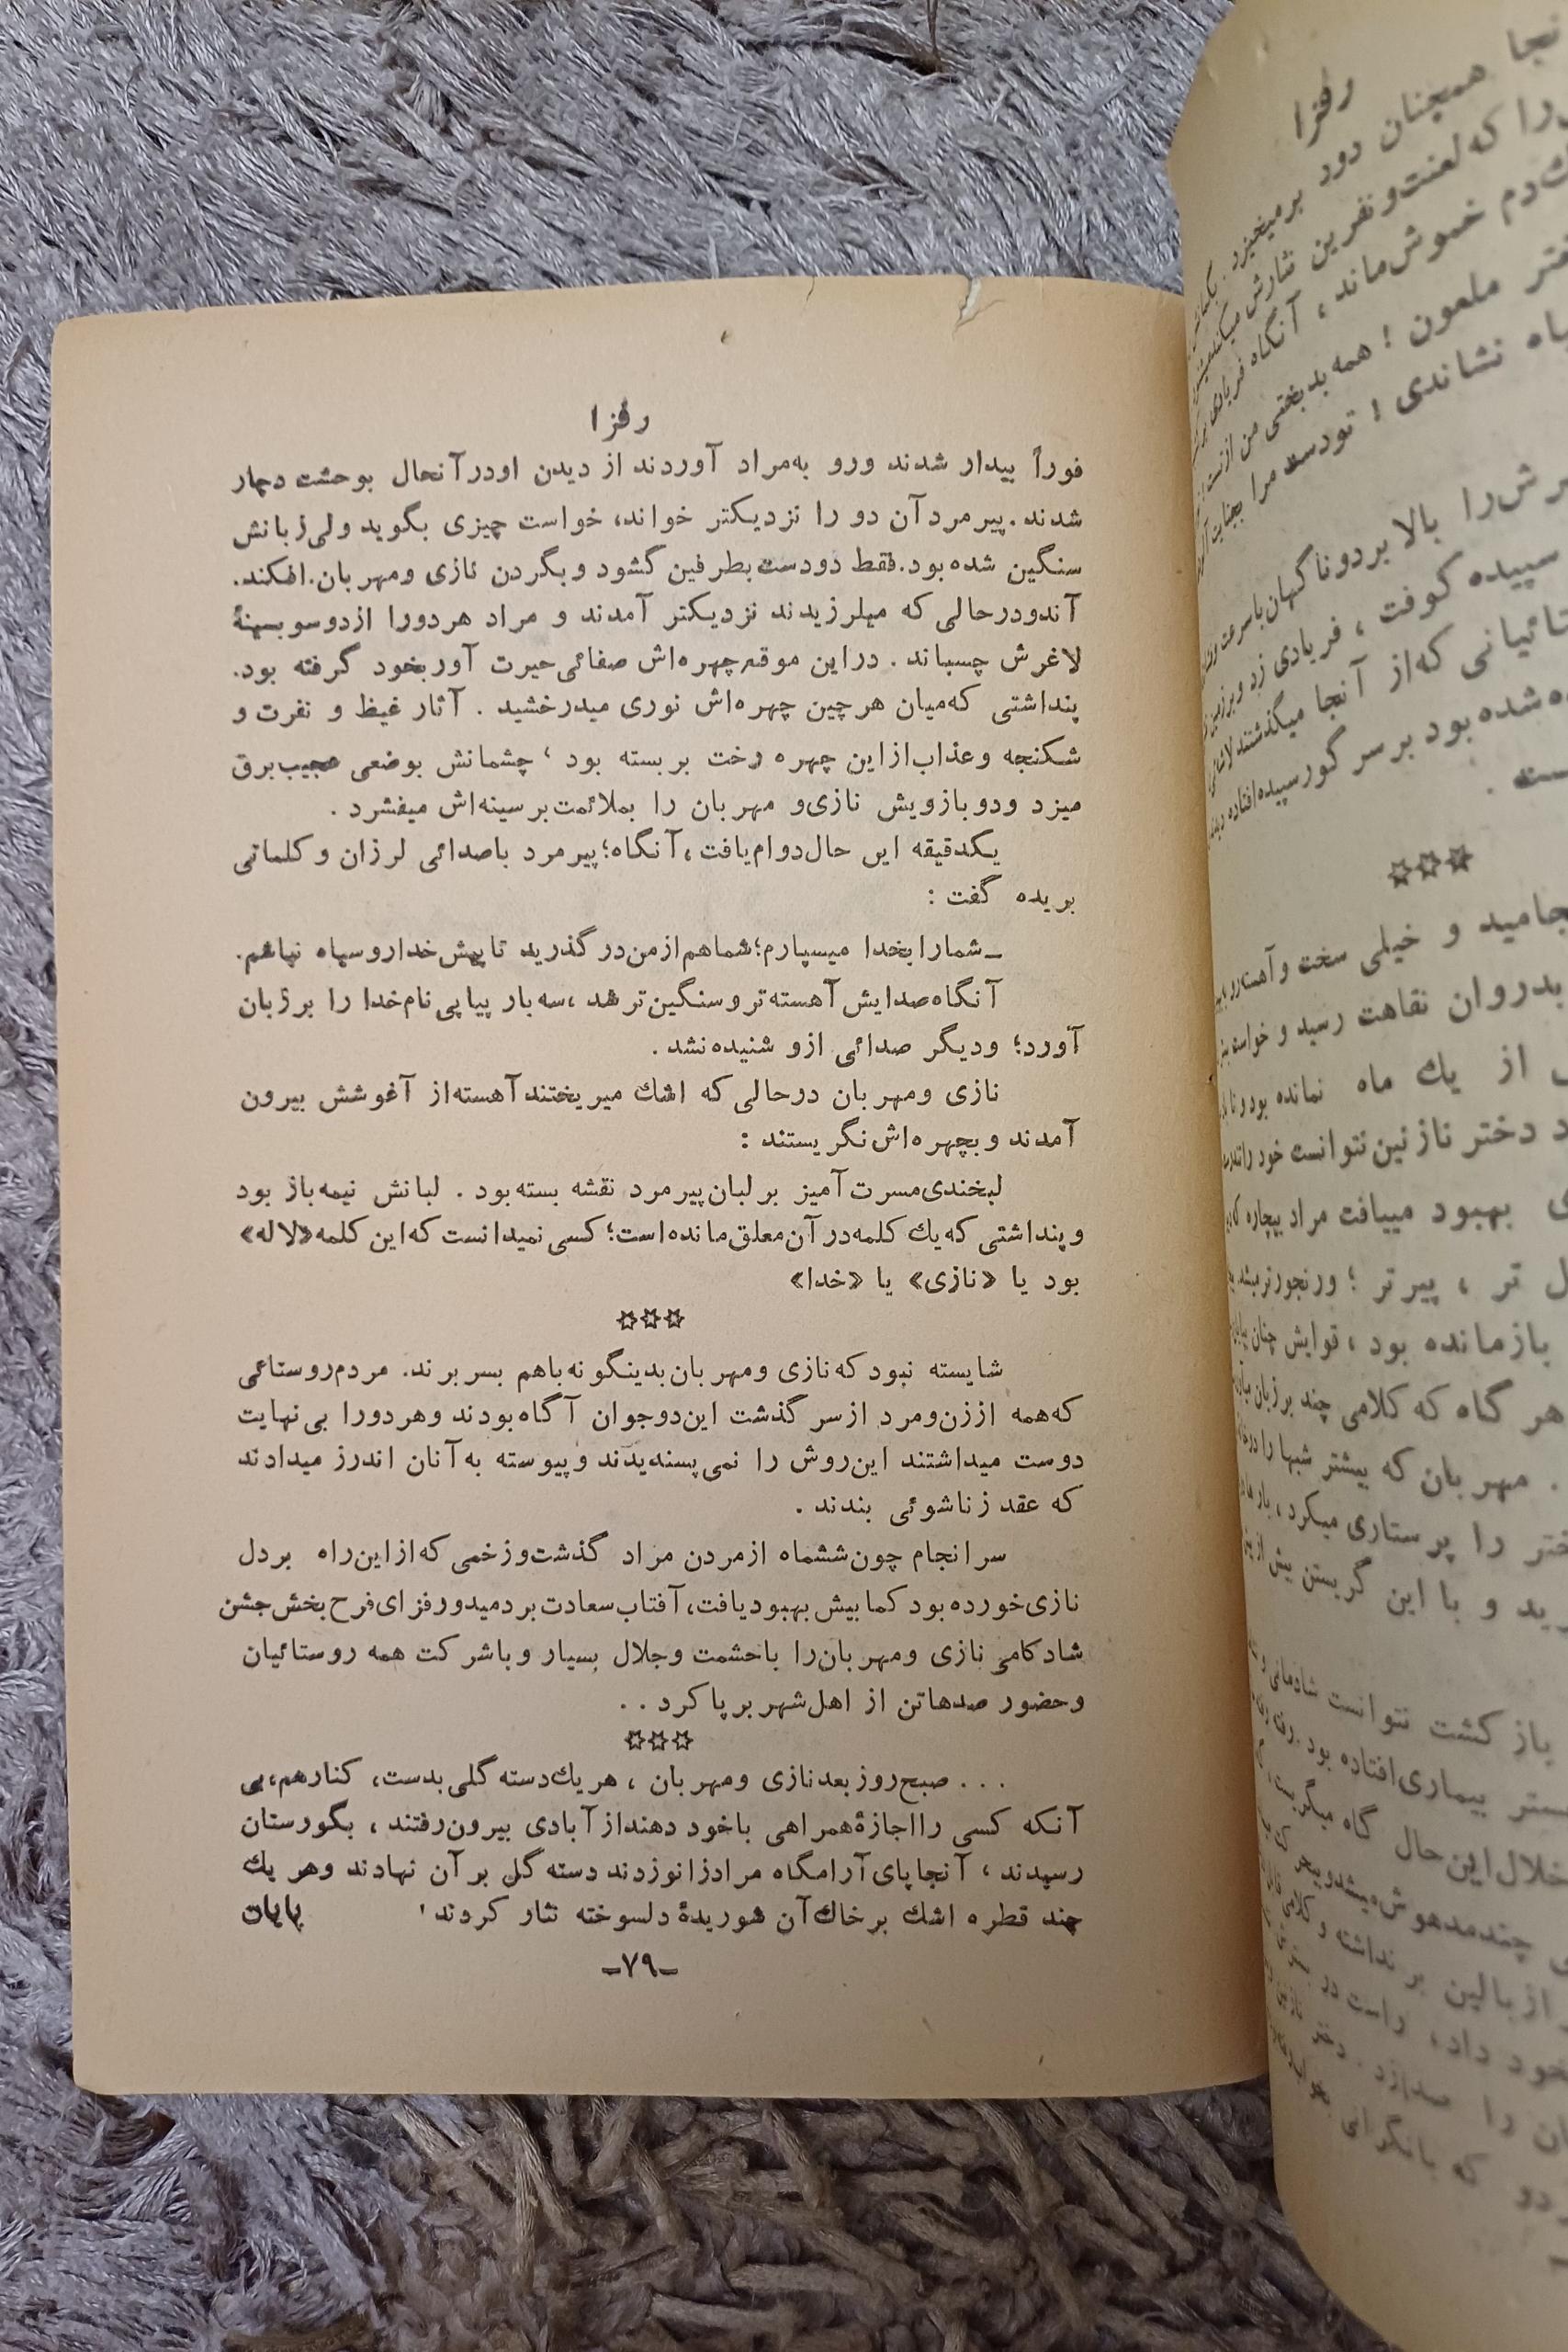 رفزا
فوراً بیدار شدند ورو به‌مراد آوردند از دیدن اودرآنحال بوحشت دچار
شدند. پیرمردآن دو را نزدیکتر خواند، خواست چیزی بگوید ولی‌زبانش
سنگین شده بود. فقط دودست بطرفین گشود و بگردن نازی ومهربان. افکند.
آندودرحالی که میلرزیدند نزدیکتر آمدند و مراد هردورا ازدوسو بسینهٔ
لاغرش چسباند . دراین موقع چهره‌اش صفائی حیرت آور بخود گرفته بود.
پنداشتی که‌میان هرچین چهره‌اش نوری میدرخشید . آثار غیظ و نفرت و
شکنجه وعذاب‌ازاین چهره رخت بربسته بود ، چشمانش بوضعی عجیب برق
میزد ودوبازویش نازی‌و مهربان را بملائمت برسینه‌اش میفشرد .
یکدقیقه این حال دوام‌یافت، آنگاه؛ پیرمرد باصدائی لرزان و کلماتی
بریده گفت :
ـ شمارا بخدا میسپارم؛ شماهم‌ازمن‌درگذرید تاپیش خداروسیاه نباشم.
آنگاه‌صدایش آهسته‌تر و سنگین‌تر شد ، سه‌بار پیاپی نام‌خدا را برزبان
آورد؛ ودیگر صدائی ازو شنیده نشد .
نازی ومهربان درحالی که اشك میریختند آهسته از آغوشش بیرون
آمدند و بچهره‌اش نگریستند :
لبخندی‌مسرت آمیز برلبان پیرمرد نقشه بسته بود . لبانش نیمه‌باز بود
و پنداشتی که‌یك کلمه درآن معلق‌مانده‌است؛ کسی نمیدانست که‌این کلمه «لاله»
بود یا «نازی» یا «خدا»
☆☆☆
شایسته نبود که نازی ومهربان بدینگونه باهم بسربرند. مردم روستائی
که‌همه اززن‌ومرد ازسرگذشت این‌دوجوان آگاه‌بودند وهردورا بی‌نهایت
دوست میداشتند این‌روش را نمی‌پسندیدند و پیوسته به‌آنان اندرز میدادند
که عقد زناشوئی بندند .
سرانجام چون ششماه ازمردن مراد گذشت وزخمی که‌ازاین‌راه بردل
نازی‌خورده بود کمابیش بهبودیافت، آفتاب سعادت بردمید ورفزای فرح بخش جشن
شادکامی نازی ومهربان‌را باحشمت وجلال بسیار و باشرکت همه روستائیان
وحضور صدهاتن از اهل‌شهر برپاکرد . .
☆☆☆
. . . صبح‌روز بعد نازی ومهربان ، هریك دسته گلی بدست، کنارهم، بی
آنکه کسی رااجازهٔ همراهی باخود دهند از آبادی بیرون‌رفتند ، بگورستان
رسیدند ، آنجاپای آرامگاه مرادزانوزدند دسته گل برآن نهادند وهر یك
چند قطره اشك برخاك آن شوریدهٔ دلسوخته نثار کردند ' پایان
ـ۷۹ـ
رفزا
همچنان دود برمیخیزد .
را که لعنت و نفرین نثارش
دم خموش‌ماند ، آنگاه
ملعون ! همه بدبختی من
نشاندی ! تودست مرا
را بالا بردوناگهان باسرعت
سپیده کوفت ، فریادی زد
که‌از آنجا میگذشتند
شده بود برسر گورسپیده افتاده
☆☆☆
و خیلی سخت وآهسته
بدروان نقاهت رسید و
از یك ماه نمانده بود
دختر نازنین نتوانست خود را
بهبود مییافت مراد بیچاره
تر ، پیر تر ؛ ورنجورتر
بازمانده بود ، قوایش چنان
هر گاه که کلامی چند برزبان
. مهربان که بیشتر شبها را
را پرستاری میکرد ،
و با این گریستن بیش از
باز گشت نتوانست شادمانی
بیماری‌افتاده بود
این حال گاه میگریست
چندمدهوش میشد
ازبالین برنداشته و کلامی
داد، راست در
را صدا زد . دختر
دو که بانگرانی